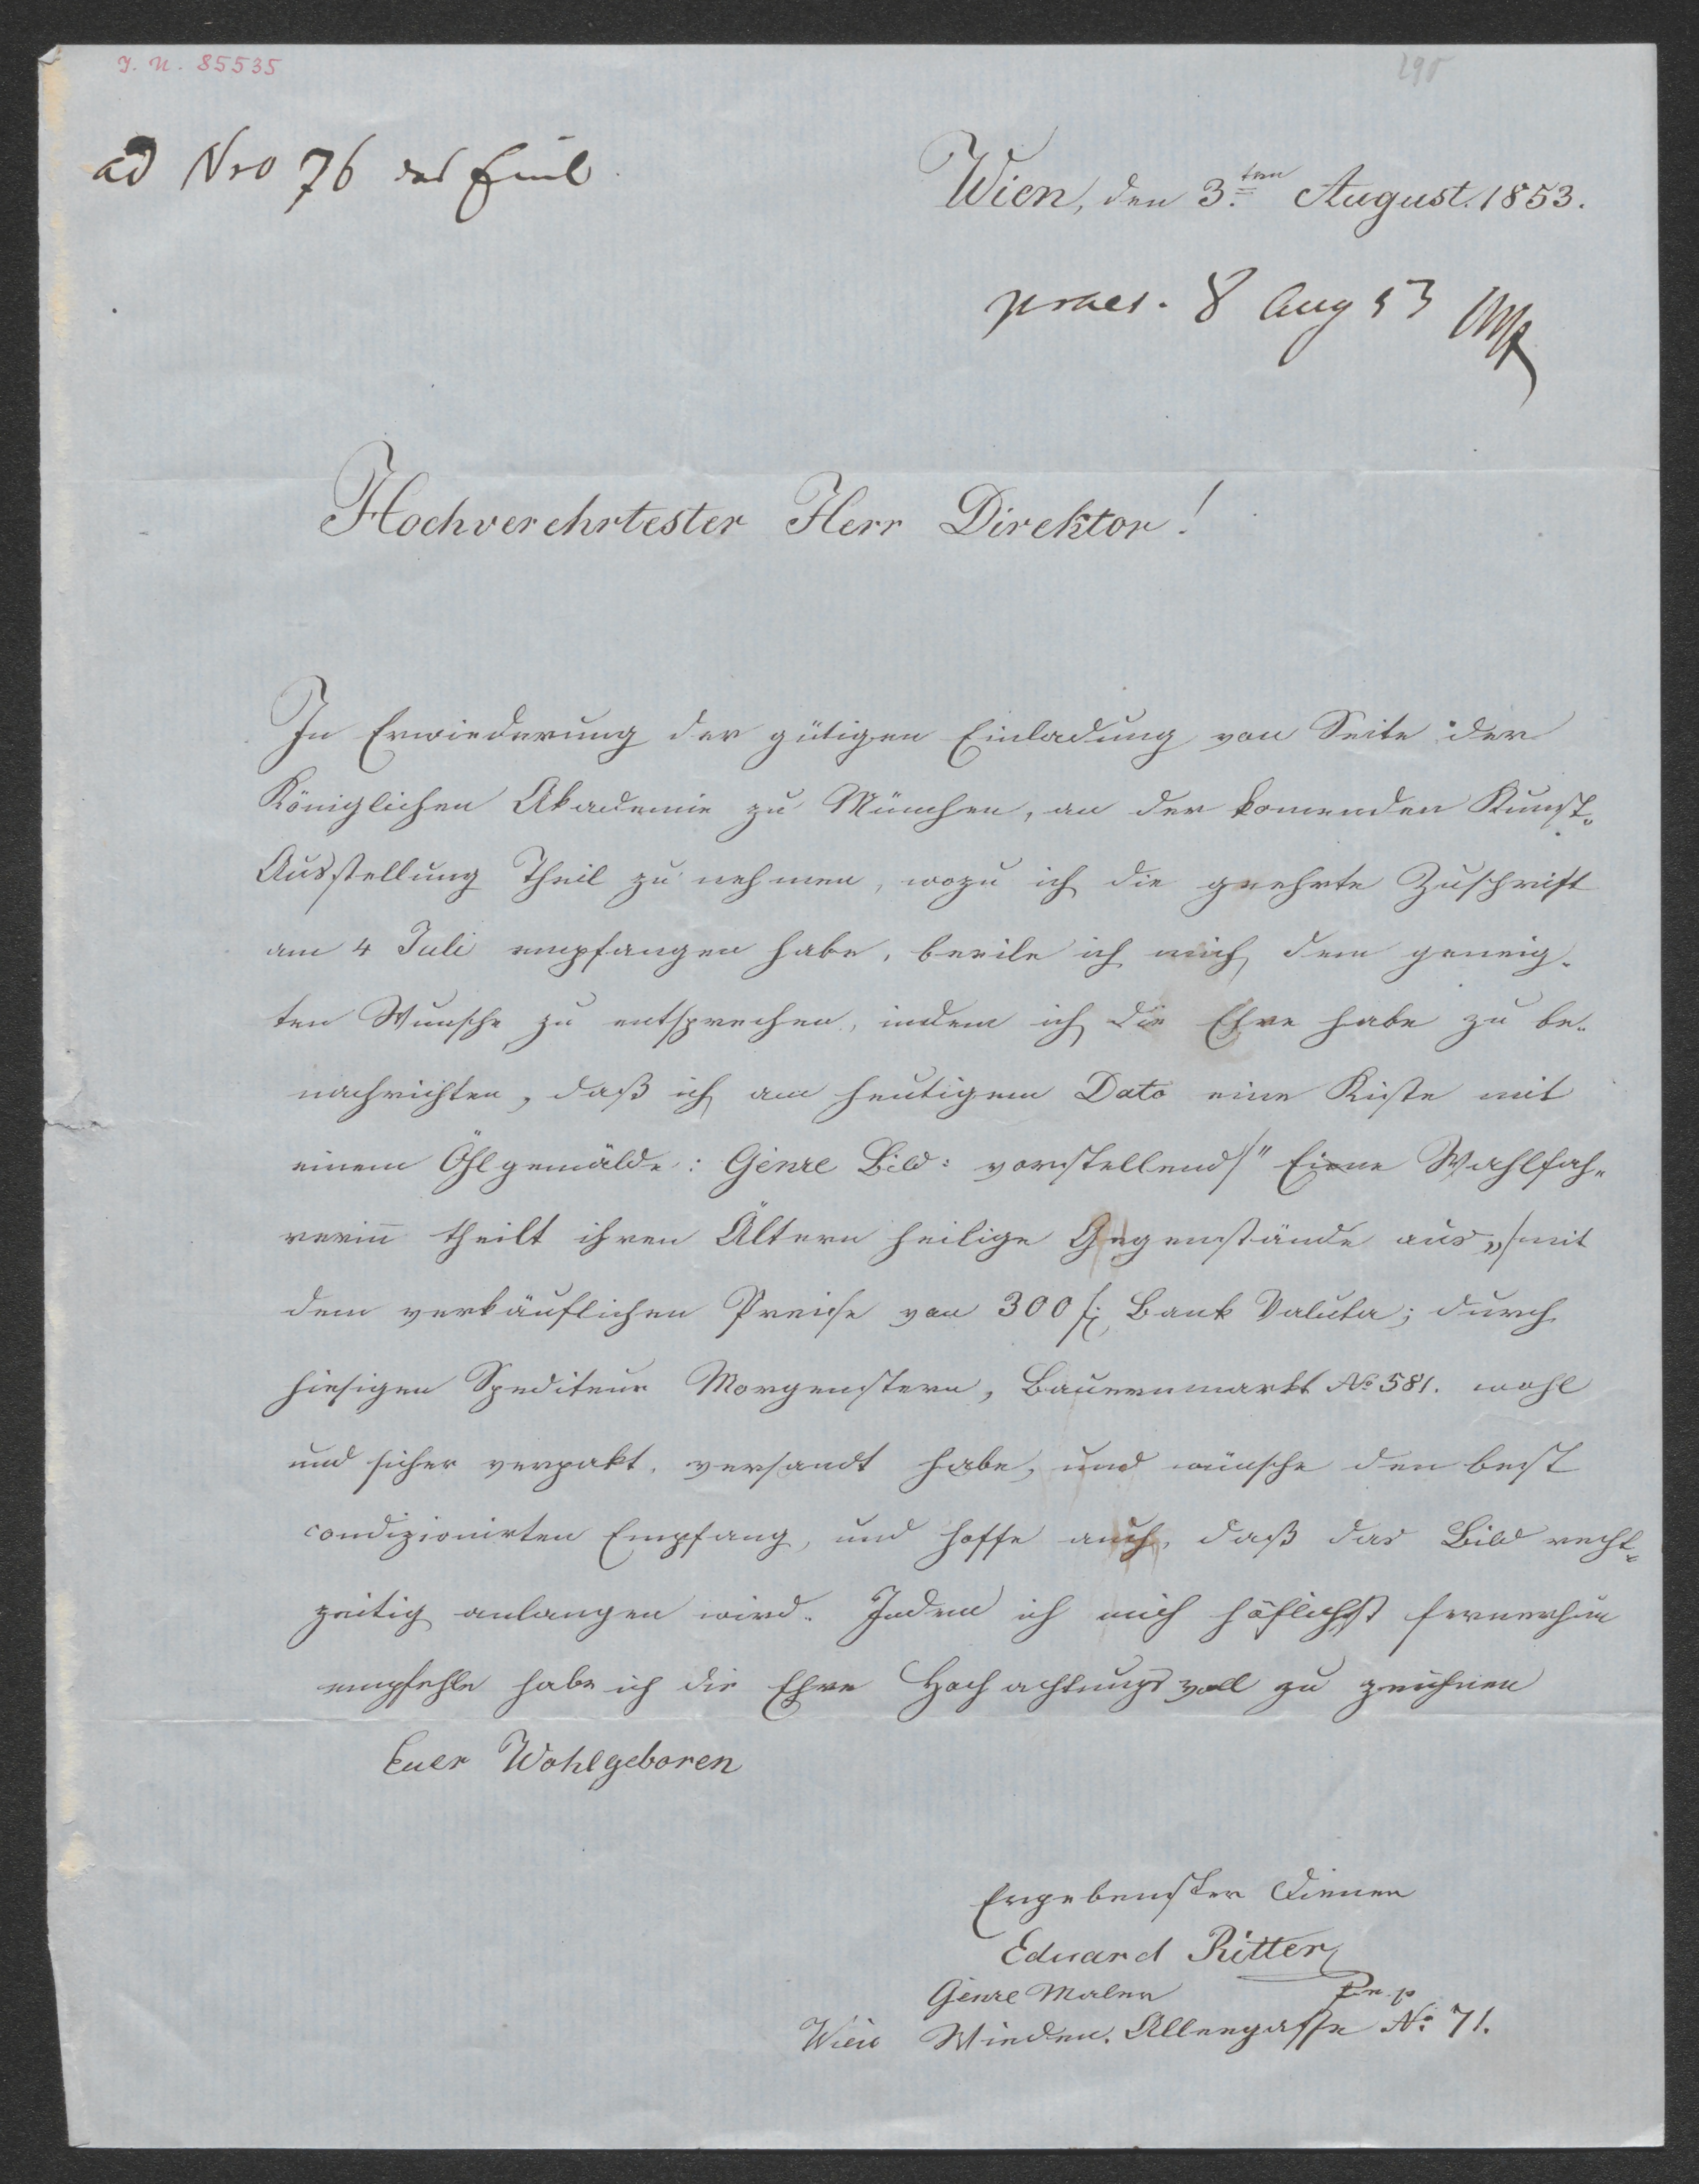 J. N. 85535
ad Nro 76 des Einl.
Wien, den 3.ten August. 1853.
praes. 8 Aug 53
Hochverehrtester Herr Direktor!
In Erwiederung der gütigen Einladung von Seite der
Königlichen Akademie zu München, an der komenden Kunst-
Ausstellung Theil zu nehmen, wozu ich die geehrte Zuschrift
am 4 Juli empfangen habe, beeile ich mich, dem geneig-
ten Wunsche zu entsprechen, indem ich die Ehre habe zu be-
nachrichten, daß ich am heutigem Dato eine Kiste mit
einem Öhlgemälde: Genre Bild: vorstellend/" Eine Wahlfah-
rerin̅ theilt ihren Ältern heilige Gegenstände aus„/mit
dem verkäuflichen Preise von 300 f; Bank Valuta; durch
hiesigen Spediteur Morgenstern, Bauernmarkt No 581. wohl
und sicher verpakt, versandt habe, und wünsche den best
condizionirten Empfang, und hoffe auch, daß das Bild recht-
zeitig anlangen wird. Indem ich mich höflichst fernerhin
empfehle habe ich die Ehre Hochachtungsvoll zu zeichnen
Euer Wohlgeboren
Ergebenster Diener
Eduard Ritter
Genre Maler
Wien Wieden. Alleegasse No 71.